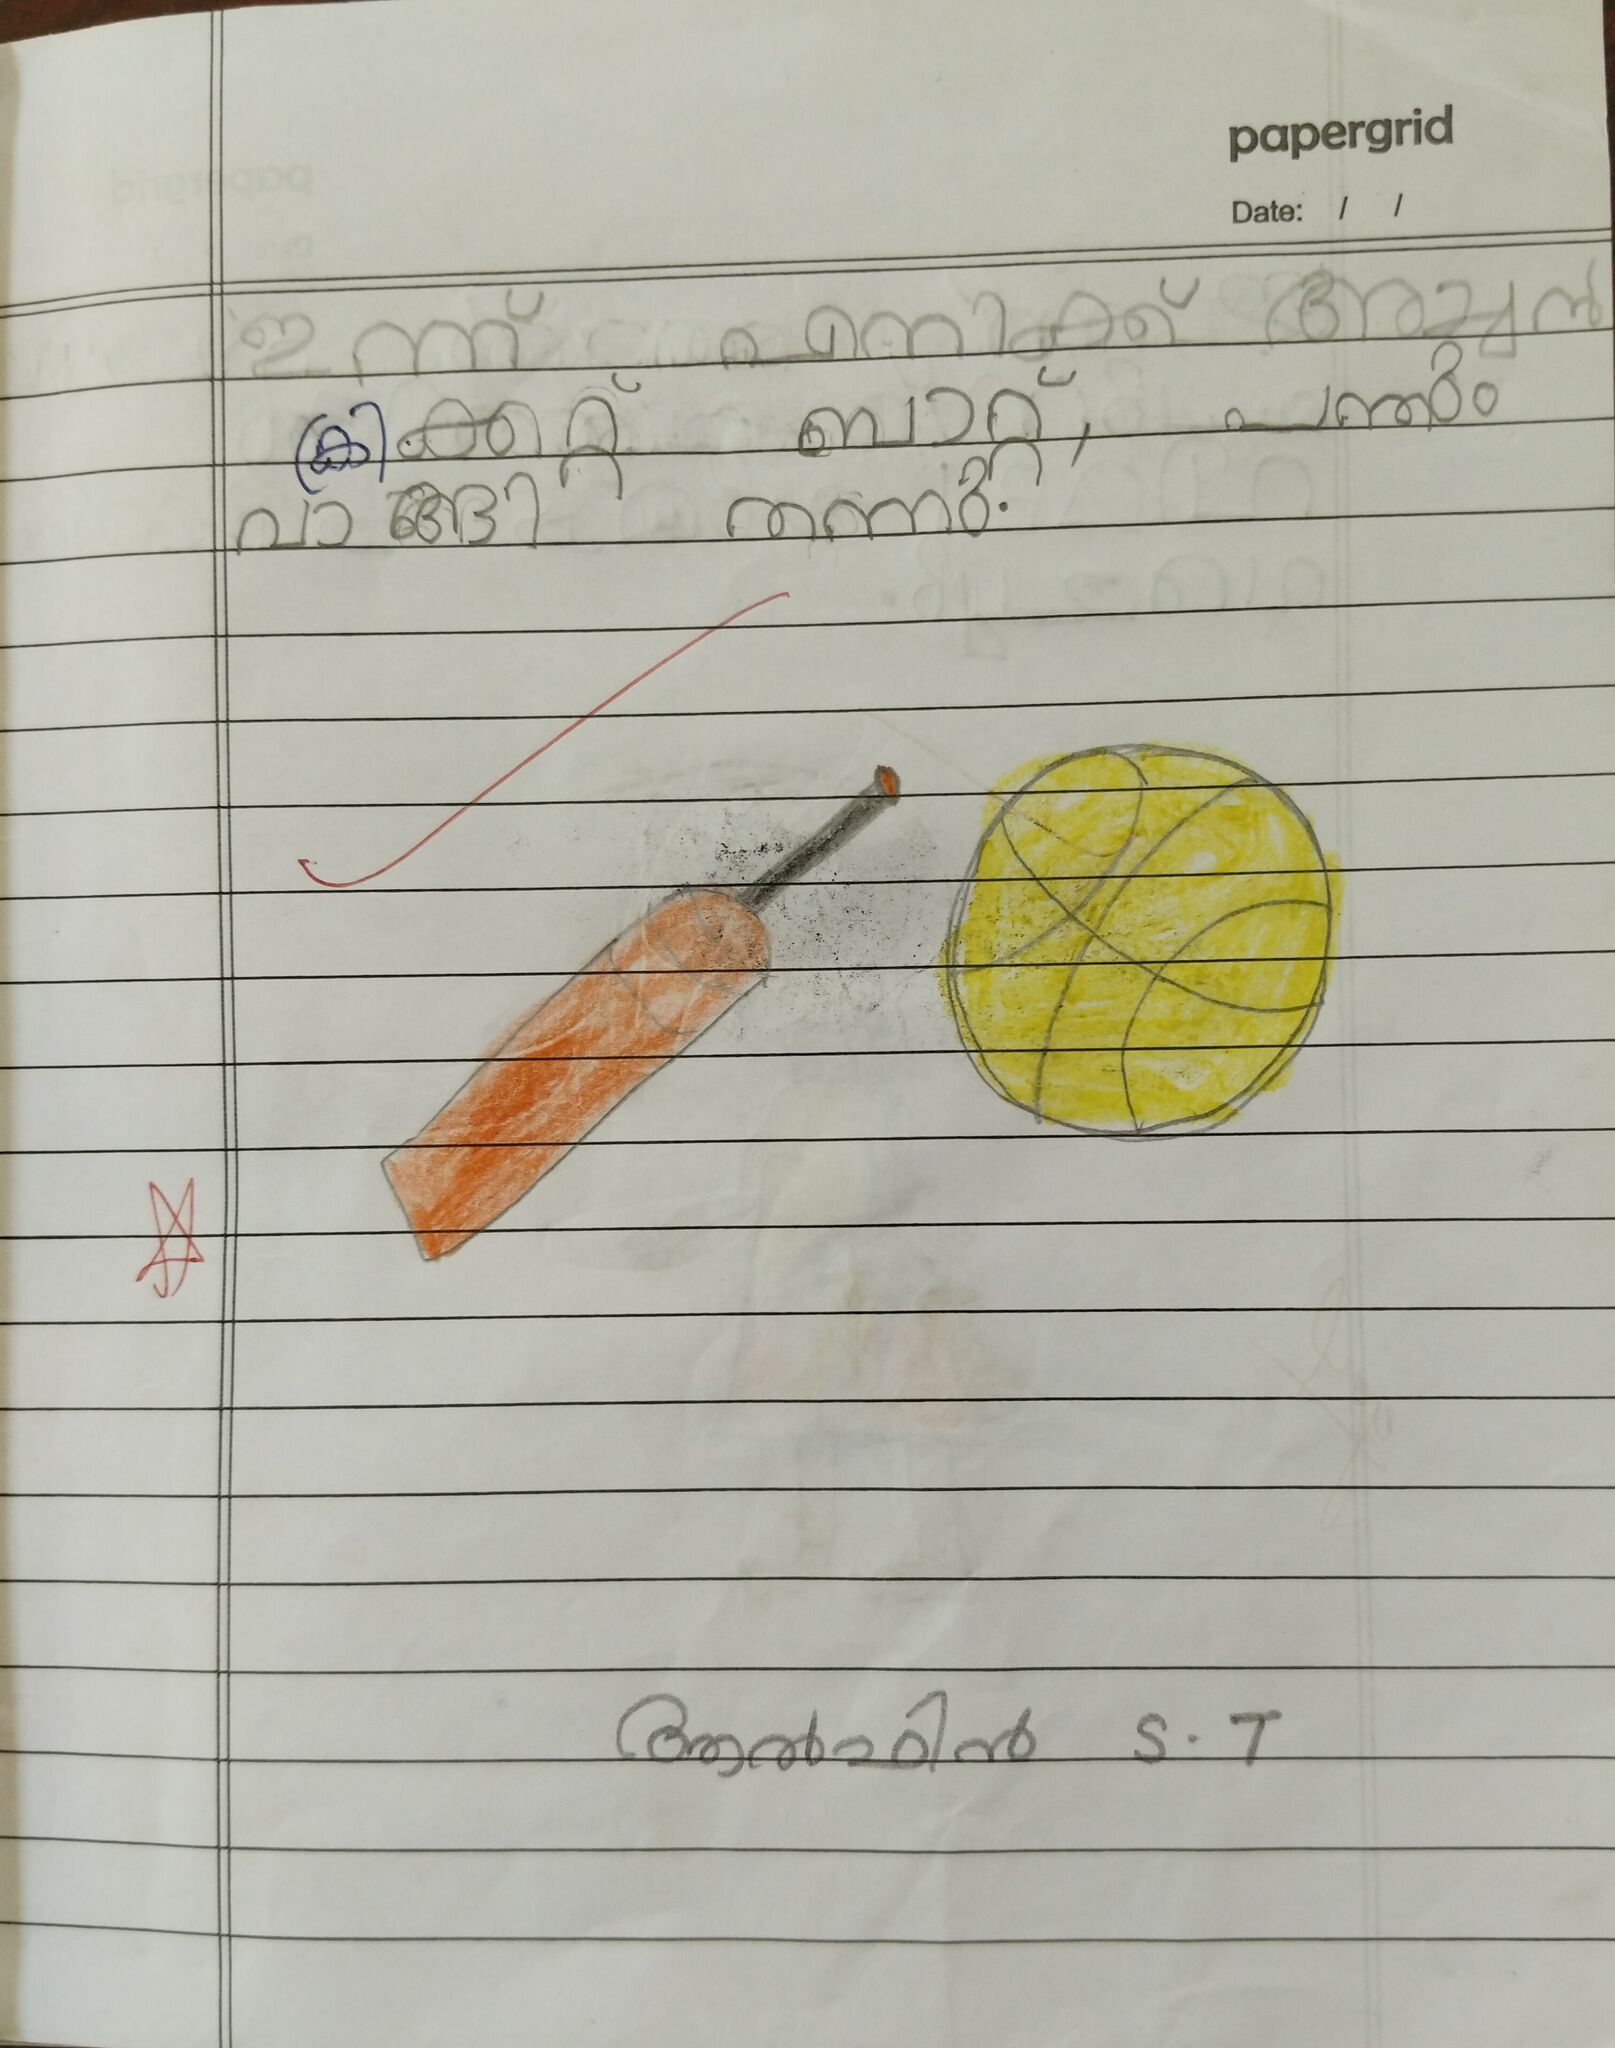 papergrid
Date: / /
ഇന്ന് എനിക്ക് അച്ചൻ
ക്രിക്കറ്റ് ബാറ്റ്, പന്തും
വാങ്ങി തന്നു.
ആൽഫിൻ S.T